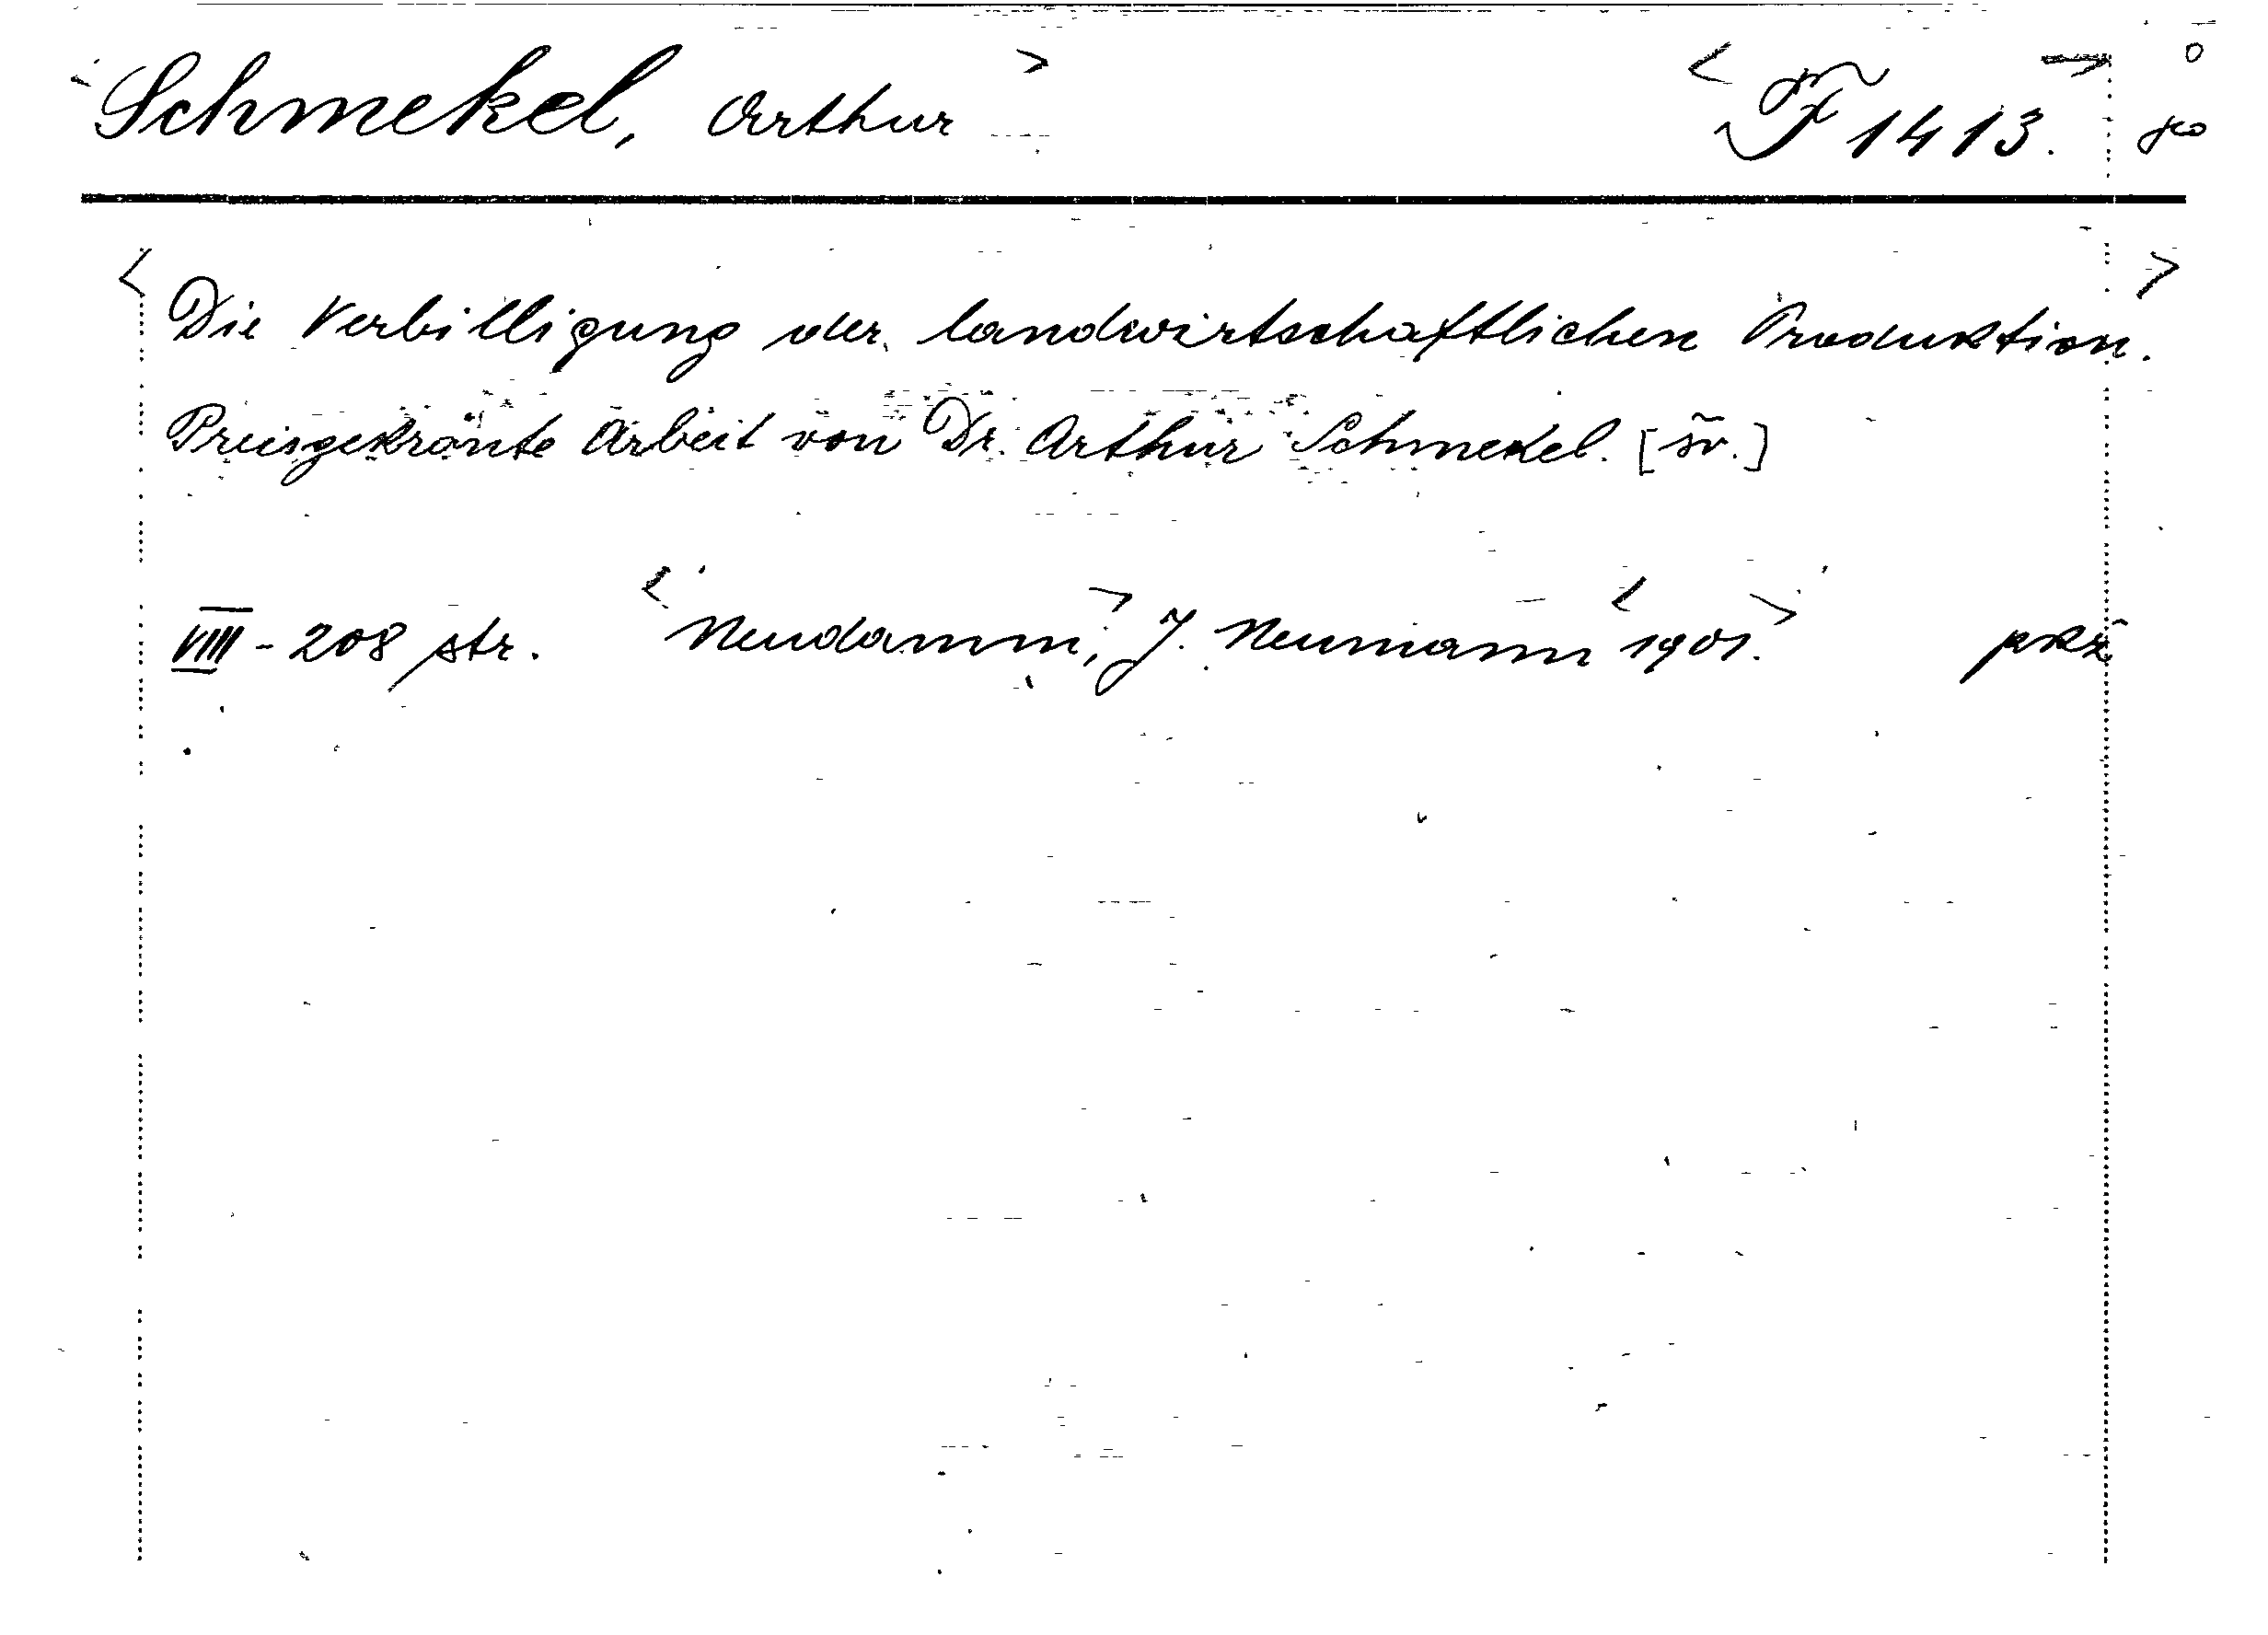 Schmekel, Arthur F 1413.
Die Verbilligung der landwirtschaftlichen Produktion.
Preisgekrönte Arbeit von Dr. Arthur Schmekel. [šv.]
VIII - 208 str. Neudamm, J. Neumann 1901. pkž